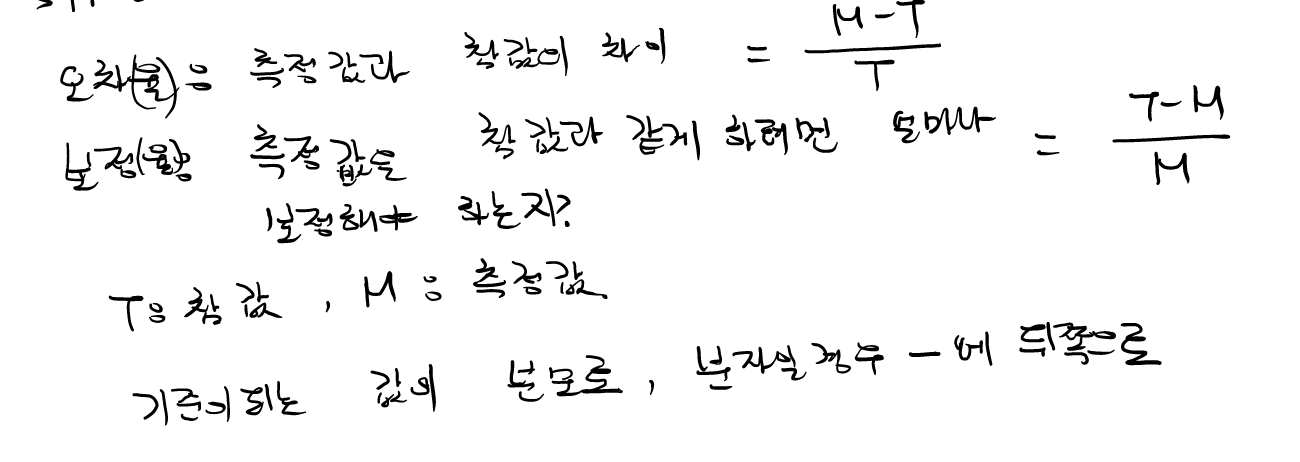 오차(율)은 측정값과 참값의 차이 = M-T / T
보정(율)은 측정값을 참값과 같게 하려면 얼마나 = T-M / M
보정해야 하는지?
T: 참값, M: 측정값
기준이되는 값이 분모로, 분자일경우 -에 뒤쪽으로